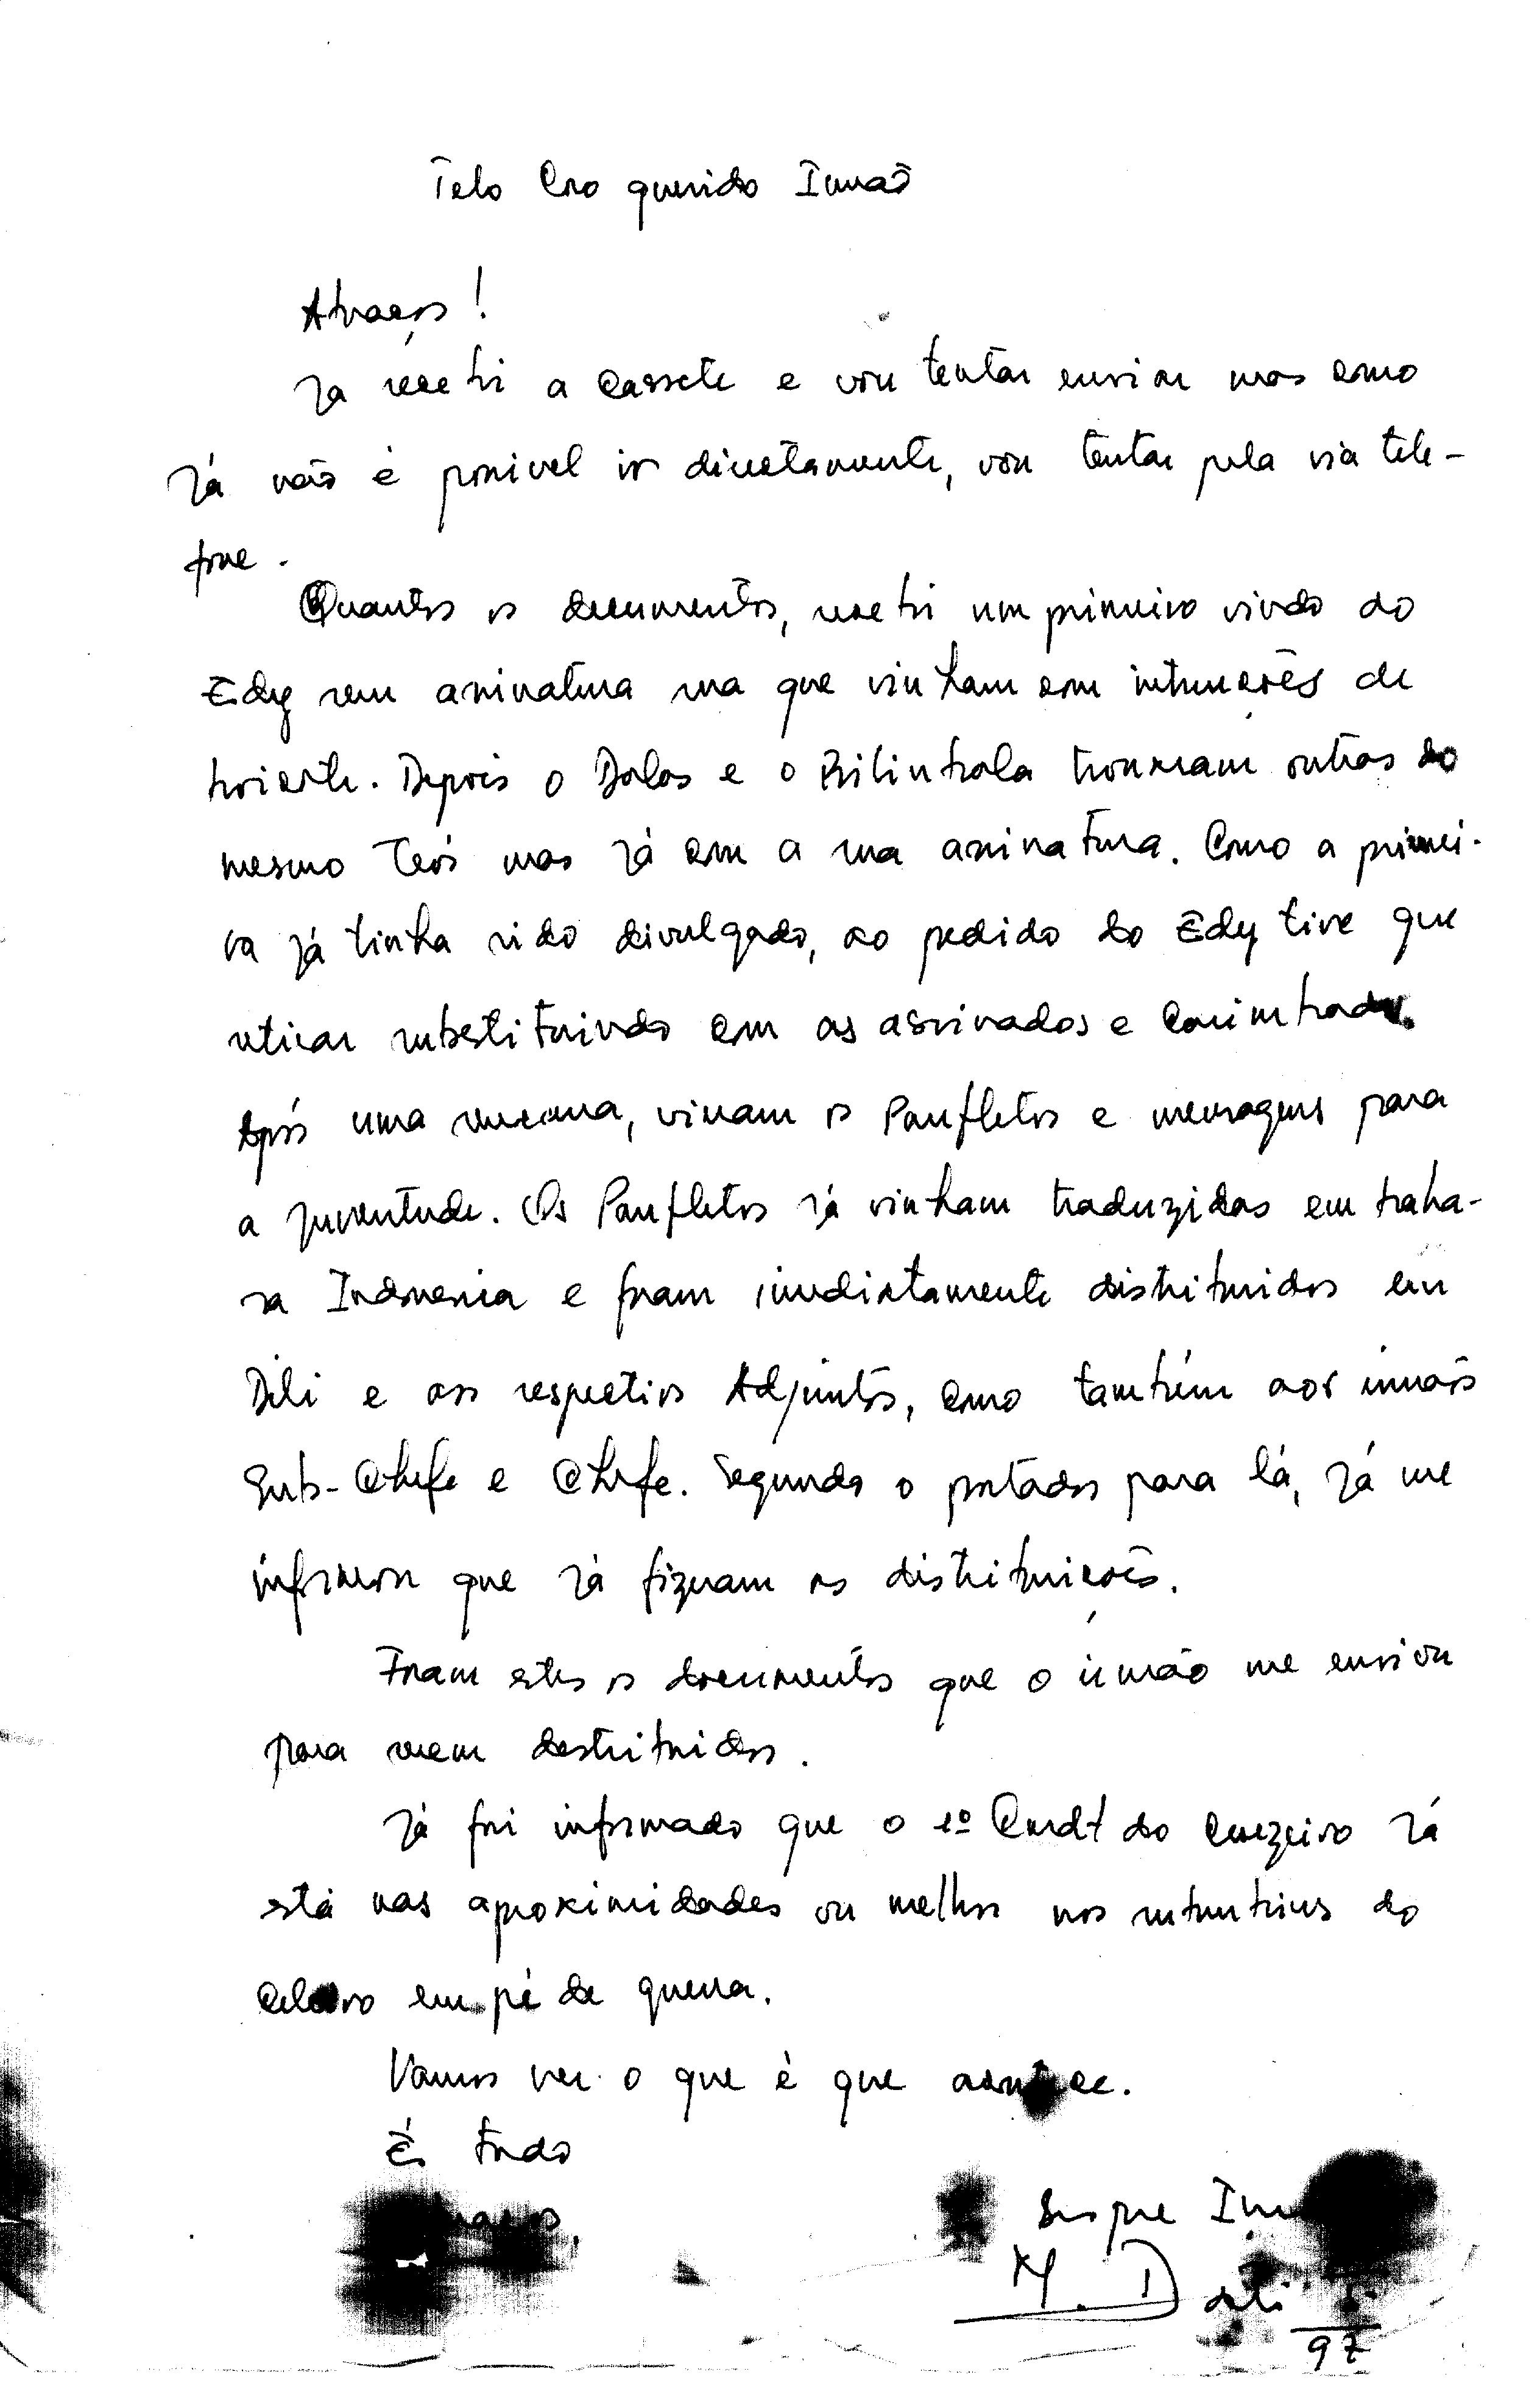 Telo Caro querido Irmão
Abraços!
Já recebi a Cassete e vou tentar enviar mas como
já não é possivel ir directamente, vou tentar pela via tele-
fone.
Quantos os documentos, recebi um primeiro vindo do
Edy sem assinatura sua que vinham com intruções de
boicote. Depois o Dolas e o Bilimbala trouxeram outras do
mesmo teôr mas já com a sua assinatura. Como a primei-
ra já tinha sido divulgado, ao pedido do Edy tive que
retirar substituindo com as assinados e carimbados.
Após uma semana, vieram os Panfletos e mensagens para
a juventude. Os Panfletos já vinham traduzidas em baha-
sa Indonesia e foram imediatamente distribuidos em
Dili e aos respectivos Adjuntos, como também aos irmãos
Sub-Chefe e Chefe. Segundo o portador para lá, já me
informou que já fizeram as distribuições.
Foram estes os documentos que o irmão me enviou
para serem destribuidos.
Já foi informado que o 1º Cmdt do Cruzeiro já
está nas aproximidades ou melhor nos suburbios do
em pé de guerra.
Vamos ver o que é que acontece.
É tudo
Sempre
M. D
97